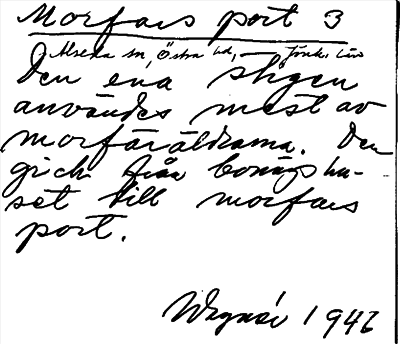 Morfars port 3
Alseda sn, Östra hd, — Jönk. län
Den ena stigen
användes mest av
morföräldrarna. Den
gick från bonings hu-
set till morfars
port.
1946